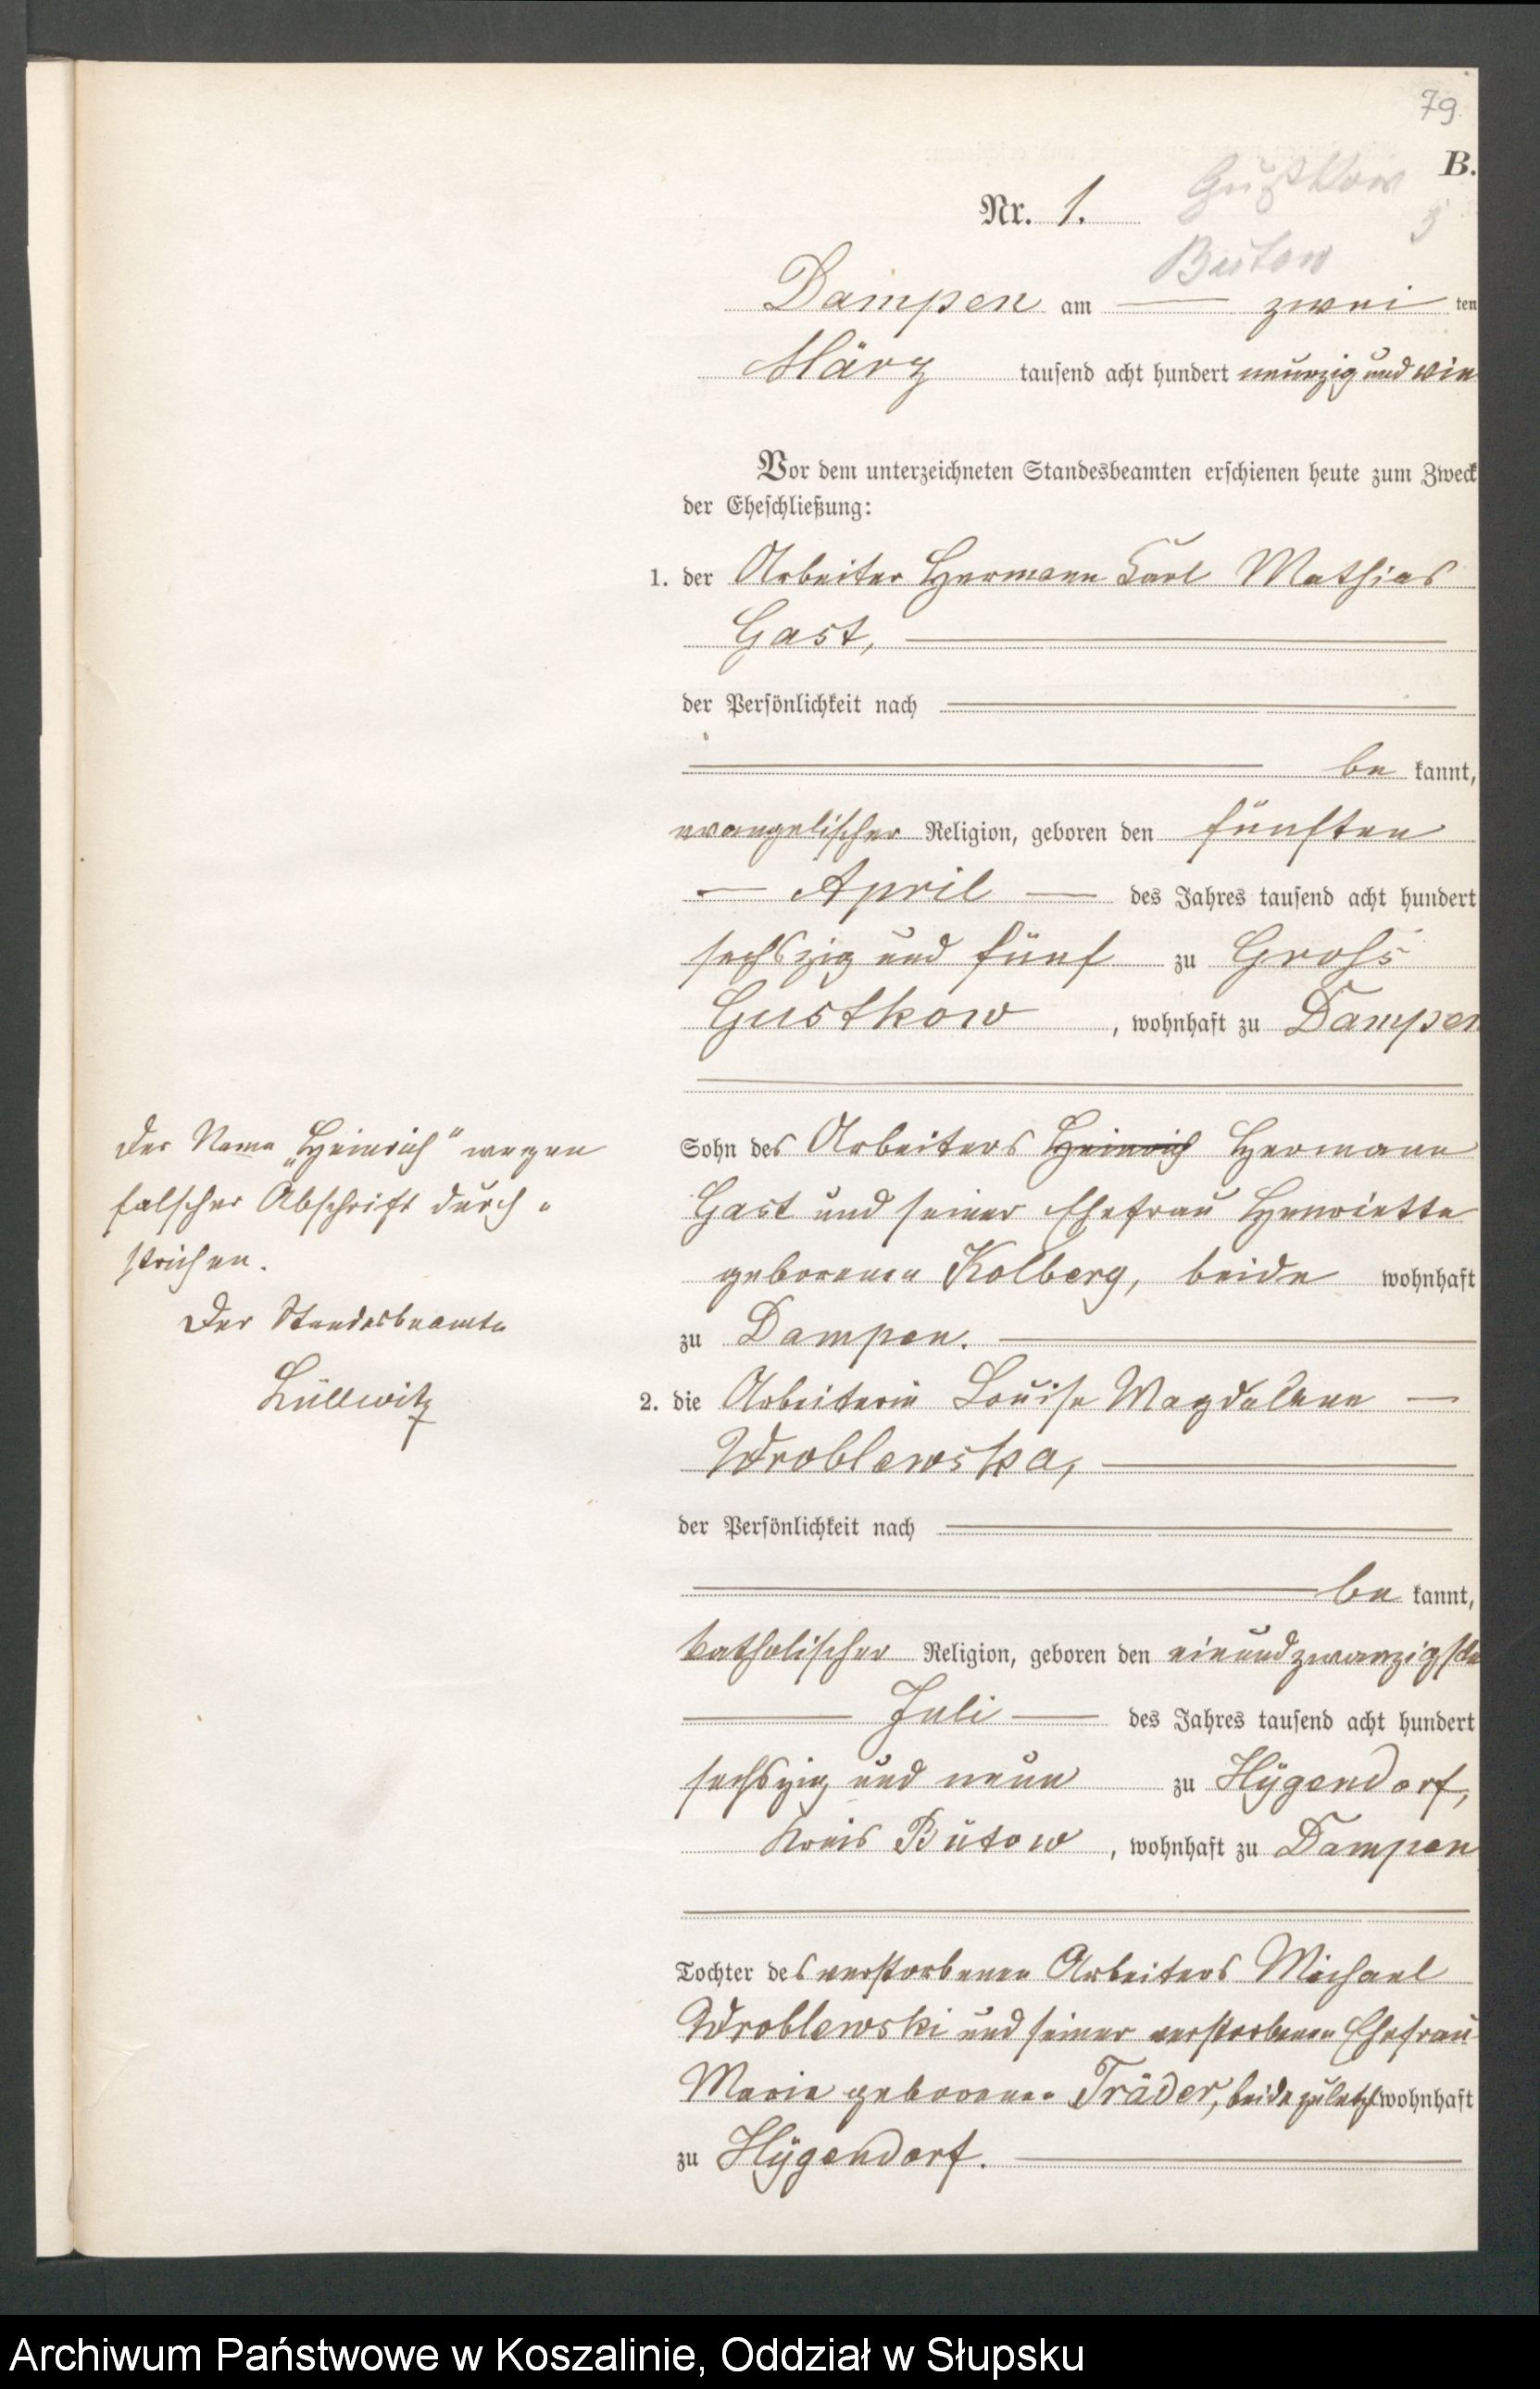 79.
B.
Nr. 1.
Gustkow
5
Butow
Dampen am zwei ten
März tausend acht hundert neunzig und vie
Vor dem unterzeichneten Standesbeamten erschienen heute zum Zweck
der Eheschließung:
1. der Arbeiter Hermann Carl Mathias
Gast,
der Persönlichkeit nach
be kannt,
evangelischer Religion, geboren den fünften
April des Jahres tausend acht hundert
sechszig und fünf zu Groß
Gustkow, wohnhaft zu Dampen
Der Name „Heinrich" wegen
falscher Abschrift durch=
strichen.
Der Standesbeamte
Lüllwitz
Sohn des Arbeiters Heinrich Hermann
Gast und seiner Ehefrau Henriette
geborenen Kolberg, beide wohnhaft
zu Dampen.
2. die Arbeiterin Louise Magdalene
Wroblewska,
der Persönlichkeit nach
be kannt,
katholischer Religion, geboren den einundzwanzigste
Juli des Jahres tausend acht hundert
sechszig und neun zu Hÿgendorf,
Kreis Bütow, wohnhaft zu Dampen
Tochter des verstorbenen Arbeiters Michael
Wroblewski und seiner verstorbenen Ehefrau
Marie geborenen Träder, beide zuletzt wohnhaft
zu Hÿgendorf.
Archiwum Państwowe w Koszalinie, Oddział w Słupsku